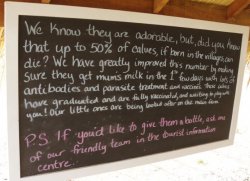 We know they are adorable, but, did you know
that up to 50% of calves, if born in the villages, can
die? We have greatly improved this number by making
sure they get mum's milk in the 1st few days with lots of
antibodies and parasite treatment and vaccines. These calves
have graduated and are fully vaccinated, and waiting to play with
you! Our little ones are being looked after on the main farm.
P.S. If you'd like to give them a bottle, ask one
of our friendly team in the tourist information
centre.